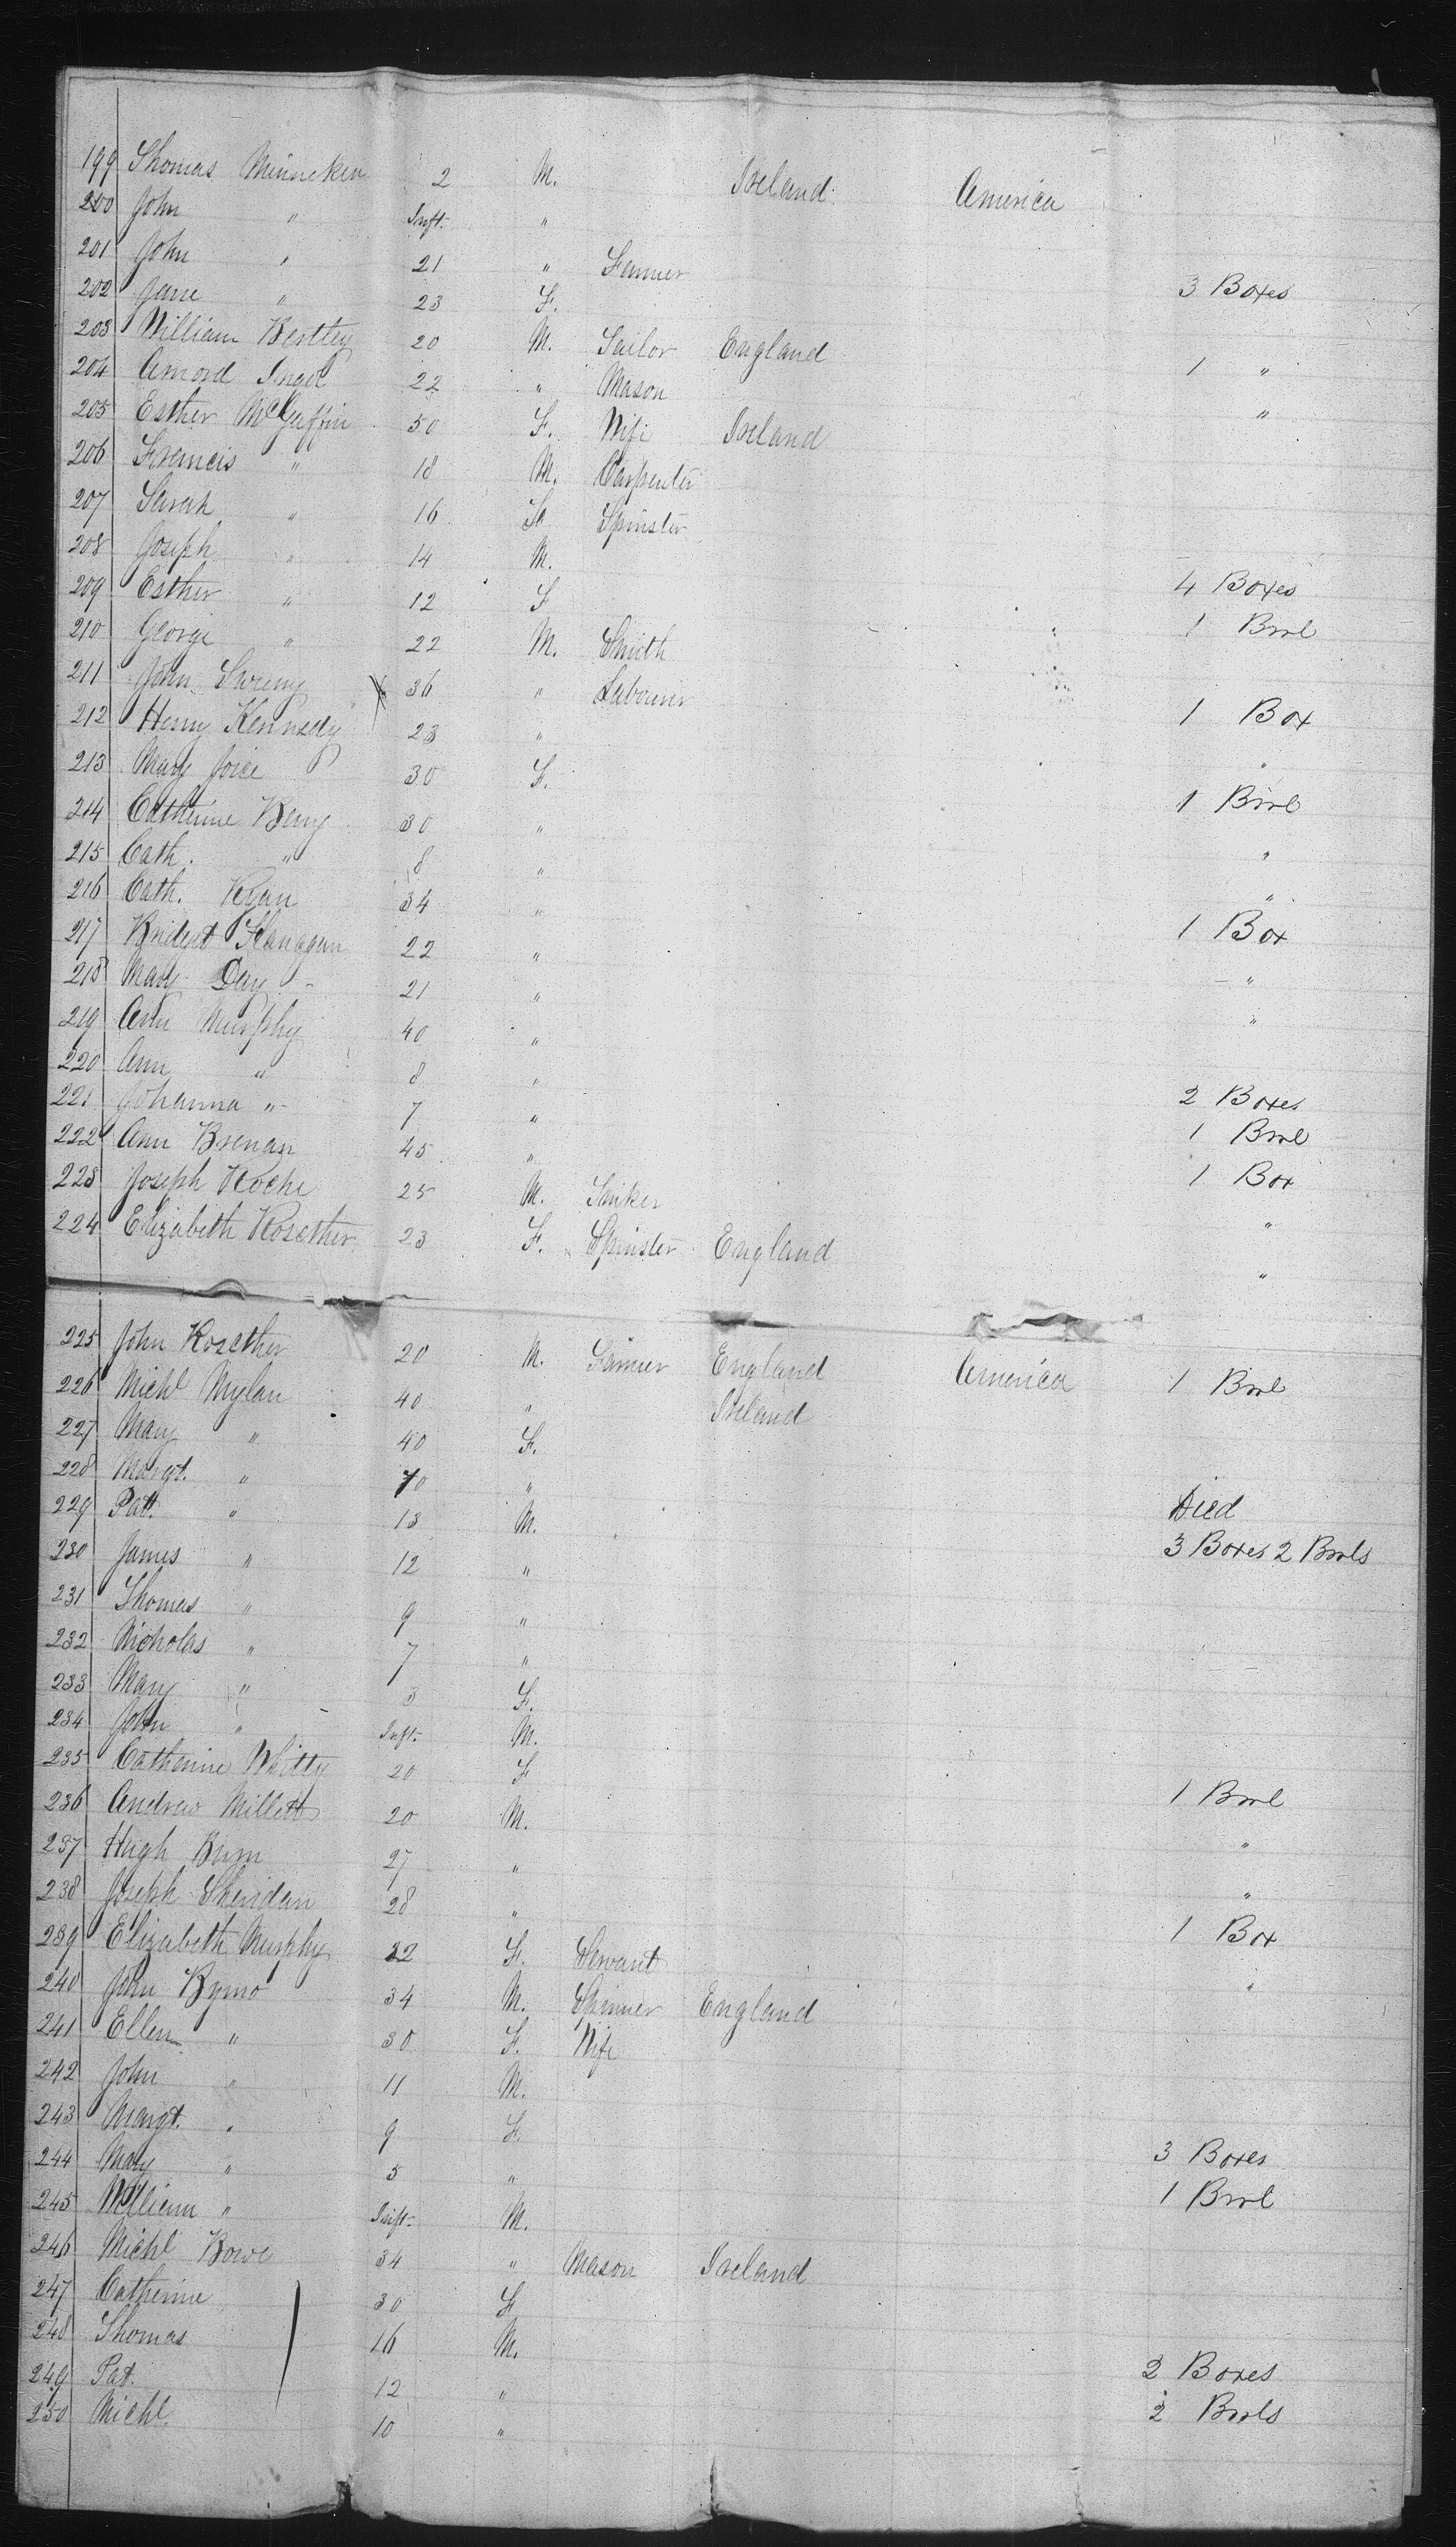 199 Thomas Minneken 2 M. Ireland America
200 John " Inft. "
201 John " 21 " Farmer
202 Jane " 23 F. 3 Boxes
203 William Bentley 20 M. Sailor England
204 22 " Mason 1 "
205 Esther McGuffin 50 F. Wife Ireland "
206 Francis " 18 M. Carpenter
207 Sarah " 16 F Spinster
208 Joseph " 14 M.
209 Esther " 12 F 4 Boxes
210 George " 22 M. Smith 1 Brrl
211 John Sweeny 36 " Labourer
212 Henry Kennedy 23 " 1 Box
213 Mary Joice 30 F. "
214 Catherine Berry 30 " 1 Brrl
215 Cath. " 8 " "
216 Cath. Ryan 34 " "
217 Bridget Flanagan 22 " 1 Box
218 Mary Day 21 " "
219 Ann Murphy 40 " "
220 Ann " 8 "
221 Johanna " 7 " 2 Boxes
222 Ann Brenan 45 " 1 Brrl
223 Joseph Roche 25 M. 1 Box
224 Elizabeth Rosether 23 F. Spinster England "
"
225 John Rosether 20 M. Farmer England America 1 Brrl
226 Michl Mylan 40 " Ireland
227 Mary " 40 F.
228 Margt. " 70 " Died
229 Patt. " 13 M. 3 Boxes 2 Brrls
230 James " 12 "
231 Thomas " 9 "
232 Nicholas " 7 "
233 Mary " 3 F.
234 John " Inft. M.
235 Catherine Whitty 20 F 1 Brrl
236 Andrew Millett 20 M. "
237 Hugh Burn 27 " "
238 Joseph Sheridan 28 " 1 Box
239 Elizabeth Murphy 22 F. Servant "
240 John 34 M. Spinner England
241 Ellen " 30 F. Wife
242 John " 11 M.
243 Margt. " 9 F. 3 Boxes
244 Mary " 5 " 1 Brrl
245 William " Inft. M.
246 Michl Bowe 34 " Mason Ireland
247 Catherine 30 F
248 Thomas 16 M. 2 Boxes
249 Pat. 12 " 2 Brrls
250 Michl. 10 "